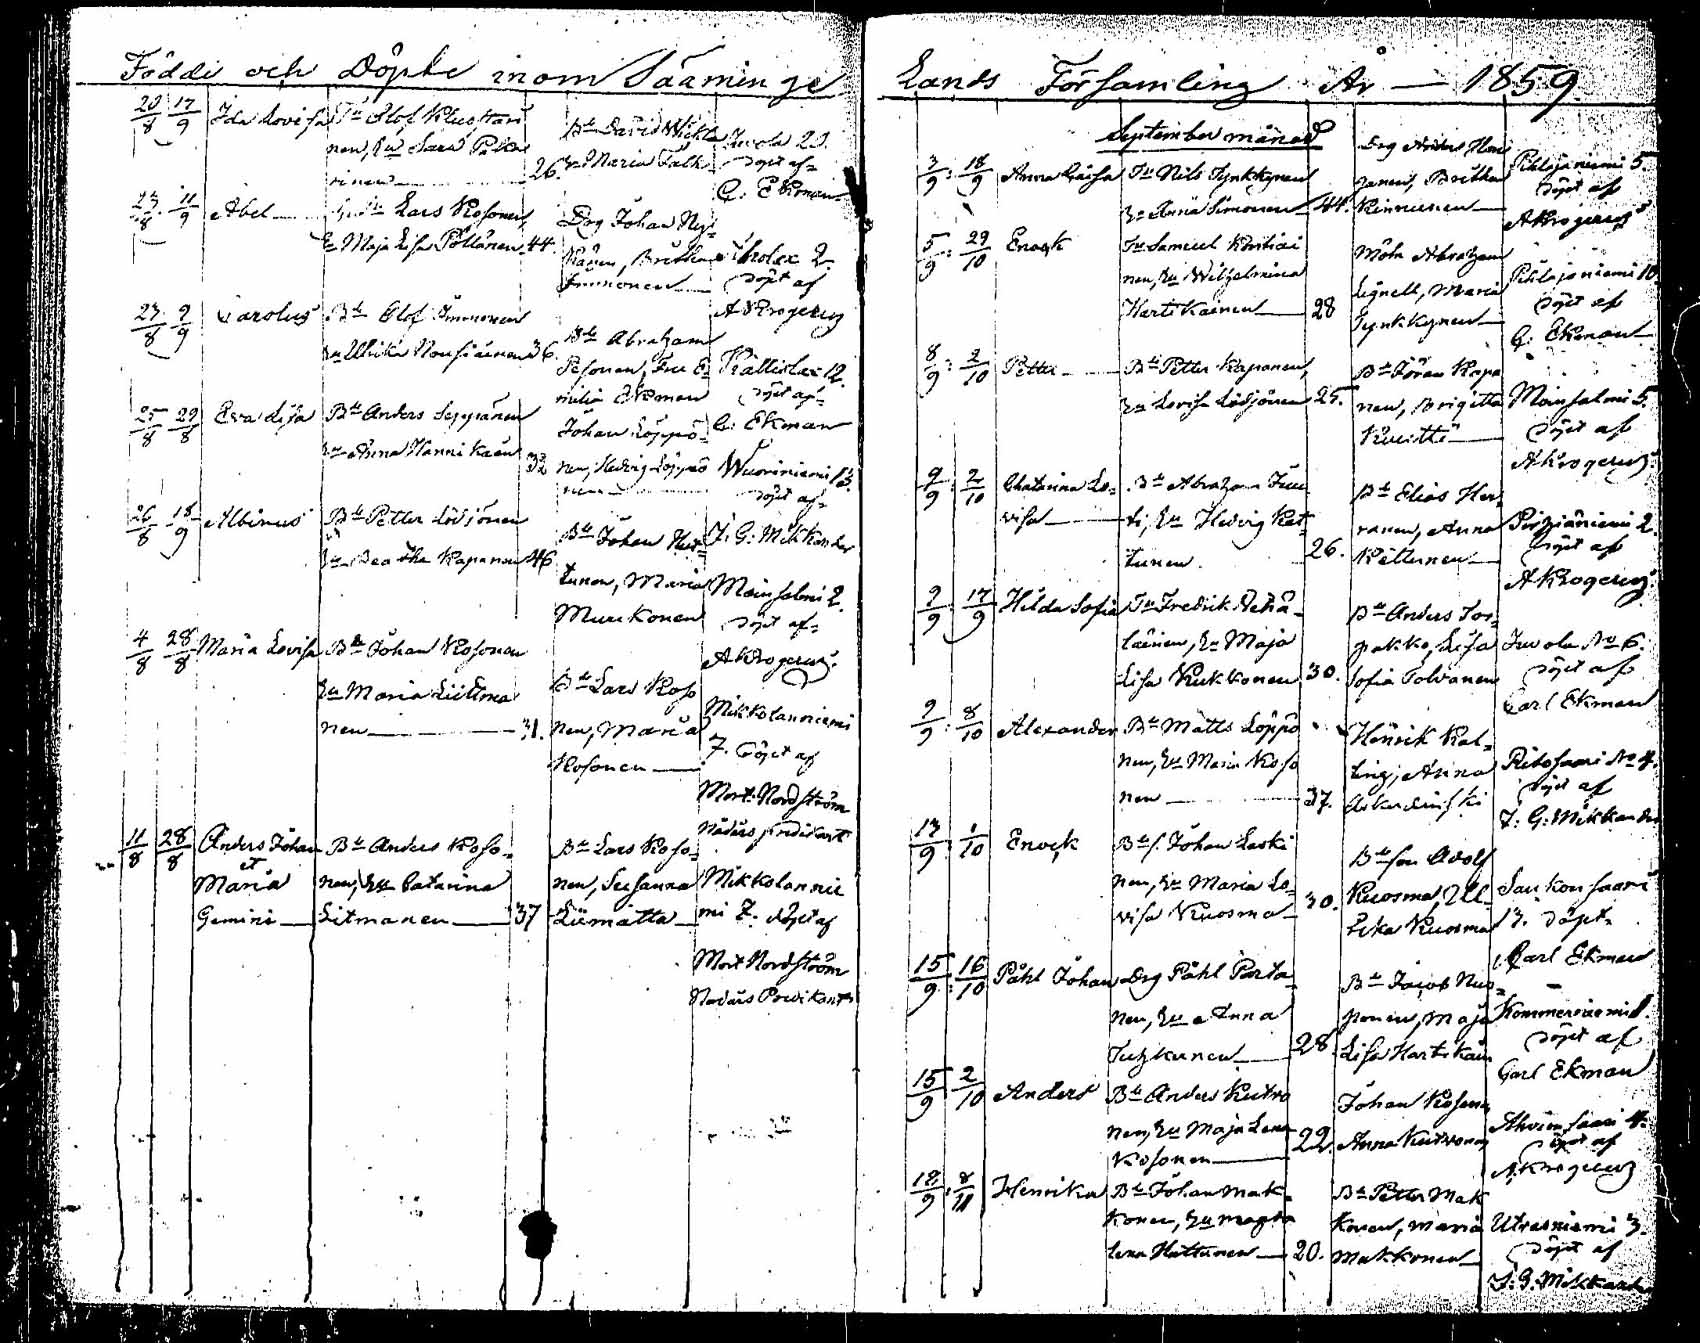 Födde och Döpte inom Sääminge
20/8 17/9 Ida Lovisa
nen, Hu Sara
26. Maria Falk
Juvola 20.
döpt af
C. Ekman
23/8 11/9 Abel Lars Kosonen,
Hu Maja Lisa Pöllänen 44.
Drg Johan
Immonen
2.
döpt af
AKrogerus
23/8 9/9 Carolus Bde Olof Immonen
Hu Ulrika Nousiainen 36.
Bde Abraham
Pesonen, Fru
Ekman
Kallislax 12.
döpt af
C. Ekman
25/8 29/8 Eva Lisa Bde Anders Seppänen
Hu Anna Hannikain 32
Johan Löppö-
nen, Hedvig Löppö
nen
Wuoriniemi 13.
döpt af
J. G. Mikkander
26/8 18/9 Albinus Bde Petter Lödjönen
Hu Beatha Kapanen 46
Bde Johan
tunen, Maria
Muukonen
Moinsalmi 2.
döpt af
AKrogerus.
4/8 28/8 Maria Lovisa Bde Johan Kosonen
Hu Maria Liitma
nen 31.
Bde Lars Koso
nen, Maria
Kosonen
Mikkolanniemi
7. döpt af
Mort. Nordström
Nådårs predikant
11/8 28/8 Anders Johan
et
Maria
Gemini
Bde Anders Koso-
nen, Hu Catarina
Litmanen 37
Bde Lars Koso-
nen, Susanna
Liimatta
Mikkolannie
mi 7. döpt af
Mort Nordström
Nådårs Predikant
Lands Församling År — 1859
September månad
3/9 18/9 Anna Caisa Tr Nils Tynkkynen
Hu Anna Simonen 44.
Drg Anders
Kinnunen
Pihlajaniemi 5.
döpt af
AKrogerus
5/9 29/10 Enock Tr Samuel
nen, Hu Wilhelmina
Hartikainen 28
Möln Abraham
Lignell, Maria
Tynkkynen
Pihlajaniemi 10
döpt af
C. Ekman
8/9 2/10 Petter Bde Petter Kapanen,
Hu Lovisa Lödjönen 25.
Bde Göran Kapa
nen, Brigitta
Moinsalmi 5.
döpt af
AKrogerus.
9/9 2/10 Chatarina Lo-
visa
Bde Abraham Juu
ti, Hu Hedvig Ket
tunen 26.
Bde Elias Her
ranen, Anna
Kettunen
Pirhiäniemi 2.
döpt af
AKrogerus.
9/9 17/9 Hilda Sofia Tr Fredrik
läinen, Hu Maja
Lisa Kukkonen 30.
Bde Anders Tor-
pakko, Lisa
Sofia Tolvanen
Juvola No 6.
döpt af
Carl Ekman
9/9 8/10 Alexander Bde Matts Löppö
nen, Hu Maria Koso
nen 37.
Henrik Kal-
ling, Anna
Ritosaari No 4.
döpt af
J. G. Mikkander
13/9 1/10 Enock Bde s. Johan Laski
nen, Hu Maria Lo-
visa Kuosma 30.
Bde son Adolf
Kuosma, Ul-
rika Kuosma
Saukonsaari
13. döpt
Carl Ekman
15/9 16/10 Påhl Johan Drg Påhl Parta-
nen, Hu Anna
28.
Bde Jacob Nus-
ponen, Maja
Lisa Hartikain
Kommerniemi 1.
döpt af
Carl Ekman
15/9 2/10 Anders Bde Anders Kutvo
nen, Hu Maja Lena
Kosonen 22.
Johan Kosonen
Anna Kutvonen
Ahvinsaari 4.
döpt af
AKrogerus
18/9 8/11 Henrika Bde Johan Mak-
konen, Hu Magta
lena Hattunen 20.
Bde Petter Mak
konen, Maria
Makkonen
Utrasniemi 3.
döpt af
J. G. Mikkander